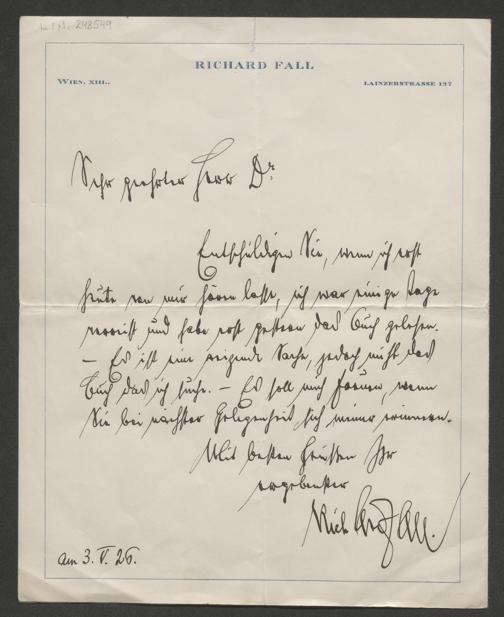 H.I.N. 248549
RICHARD FALL
WIEN, XIII.,
LAINZERSTRASSE 127
Sehr geehrter Herr Dr.
Entschuldigen Sie, wenn ich erst
heute von mir hören lasse, ich war einige Tage
verreist und habe erst gestern das Buch gelesen.
– Es ist eine reizende Sache, jedoch nicht das
Buch das ich suche. – Es soll mich freuen, wenn
Sie bei nächster Gelegenheit sich meiner erinnern.
Mit besten Grüssen Ihr
ergebenster
Richard Fall.
am 3. V. 26.